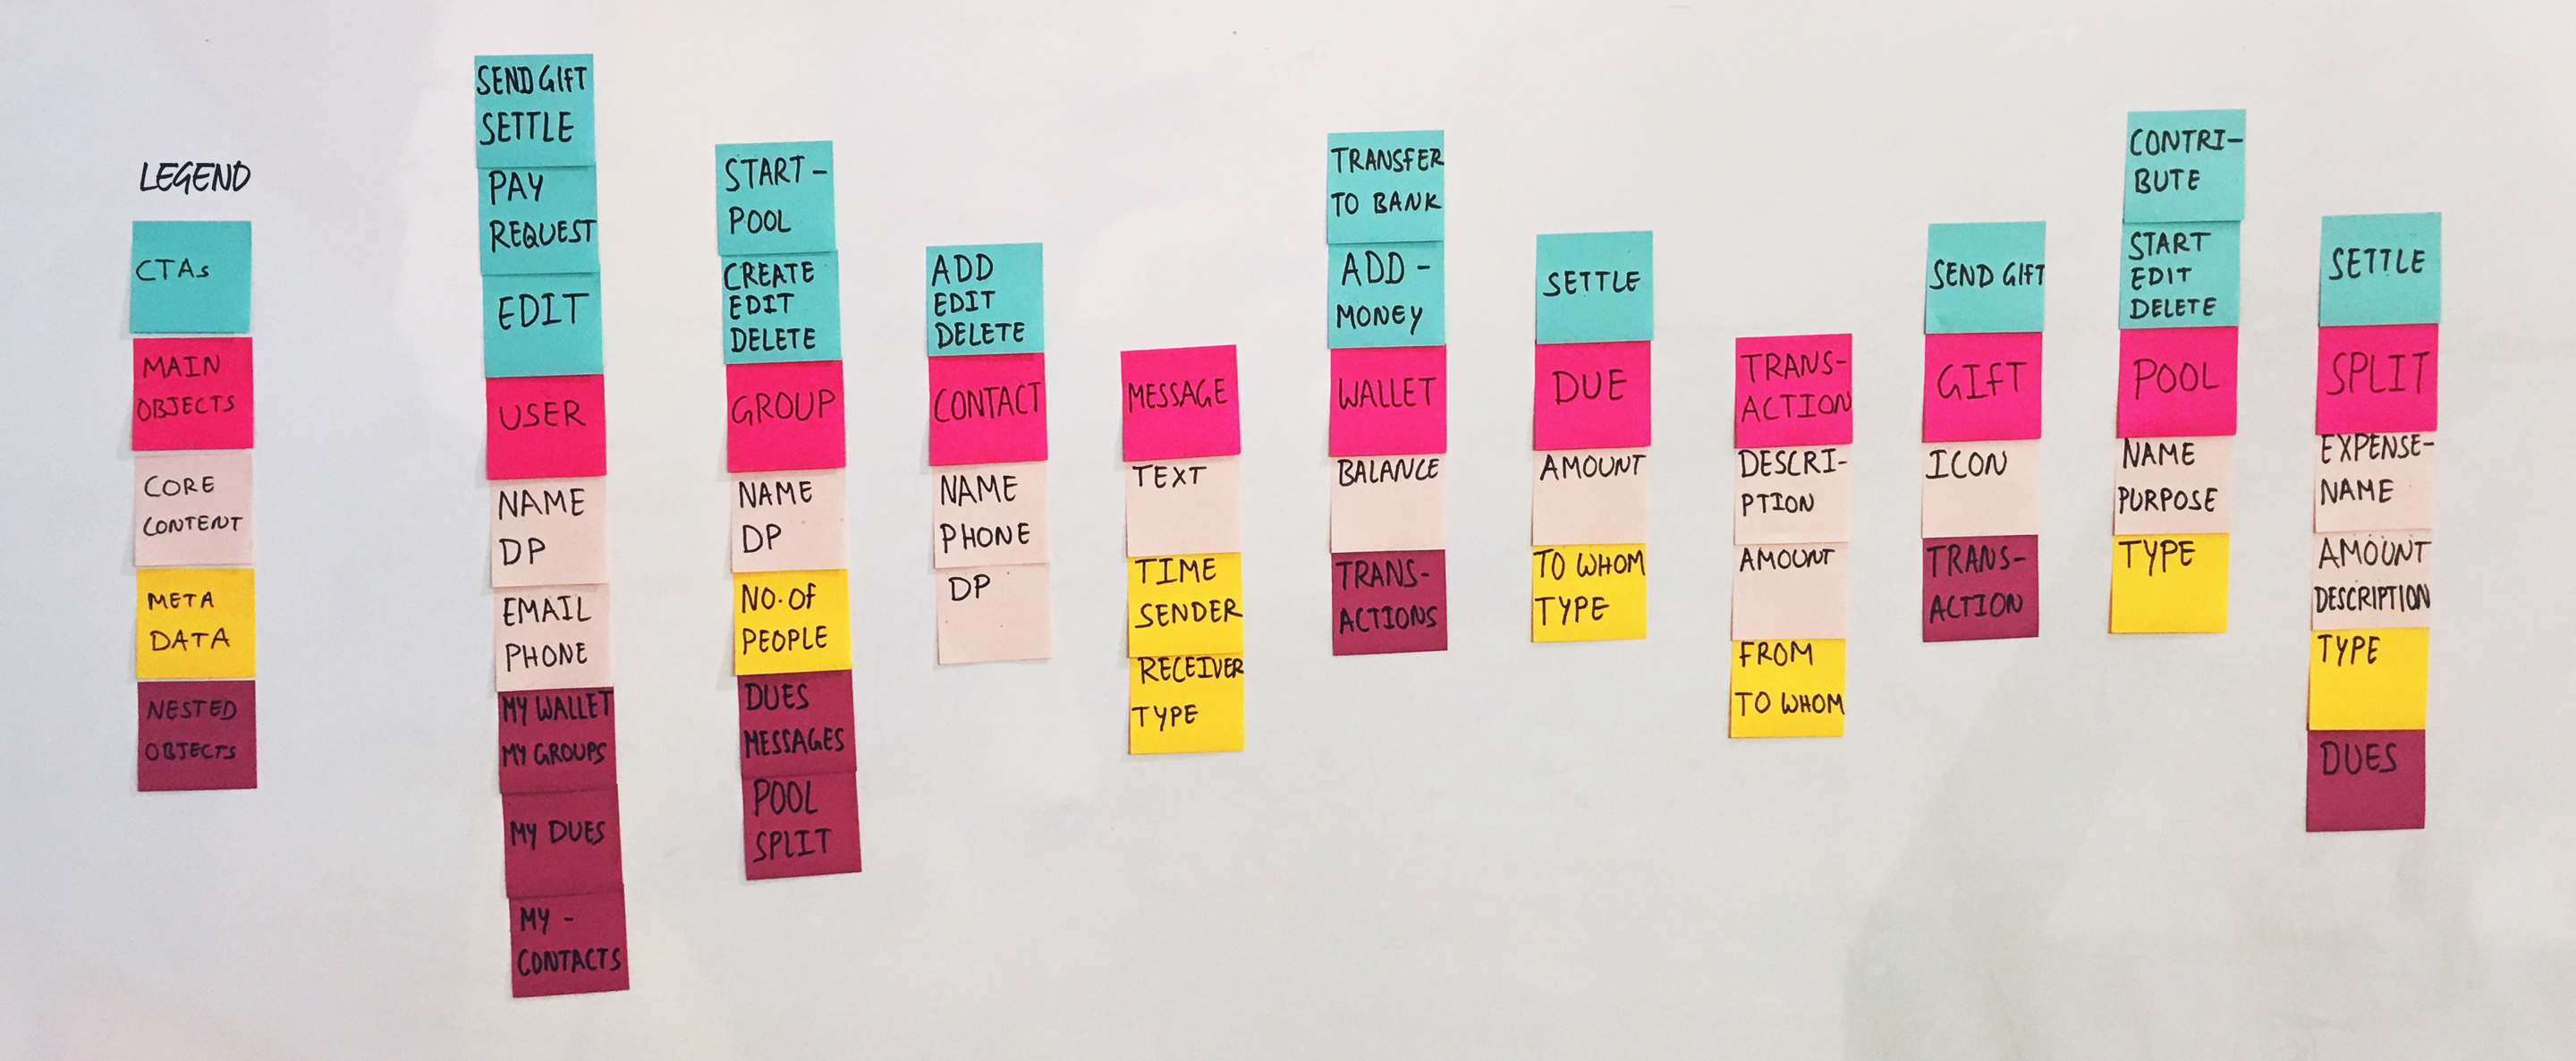 LEGEND
CTAs
MAIN
OBJECTS
CORE
CONTENT
META
DATA
NESTED
OBJECTS
SEND GIFT
SETTLE
PAY
REQUEST
EDIT
USER
NAME
DP
EMAIL
PHONE
MY WALLET
MY GROUPS
MY DUES
MY -
CONTACTS
START -
POOL
CREATE
EDIT
DELETE
GROUP
NAME
DP
NO. OF
PEOPLE
DUES
MESSAGES
POOL
SPLIT
ADD
EDIT
DELETE
CONTACT
NAME
PHONE
DP
MESSAGE
TEXT
TIME
SENDER
RECEIVER
TYPE
TRANSFER
TO BANK
ADD -
MONEY
WALLET
BALANCE
TRANS-
ACTIONS
SETTLE
DUE
AMOUNT
TO WHOM
TYPE
TRANS-
ACTION
DESCRI-
PTION
AMOUNT
FROM
TO WHOM
SEND GIFT
GIFT
ICON
TRANS-
ACTION
CONTRI-
BUTE
START
EDIT
DELETE
POOL
NAME
PURPOSE
TYPE
SETTLE
SPLIT
EXPENSE-
NAME
AMOUNT
DESCRIPTION
TYPE
DUES